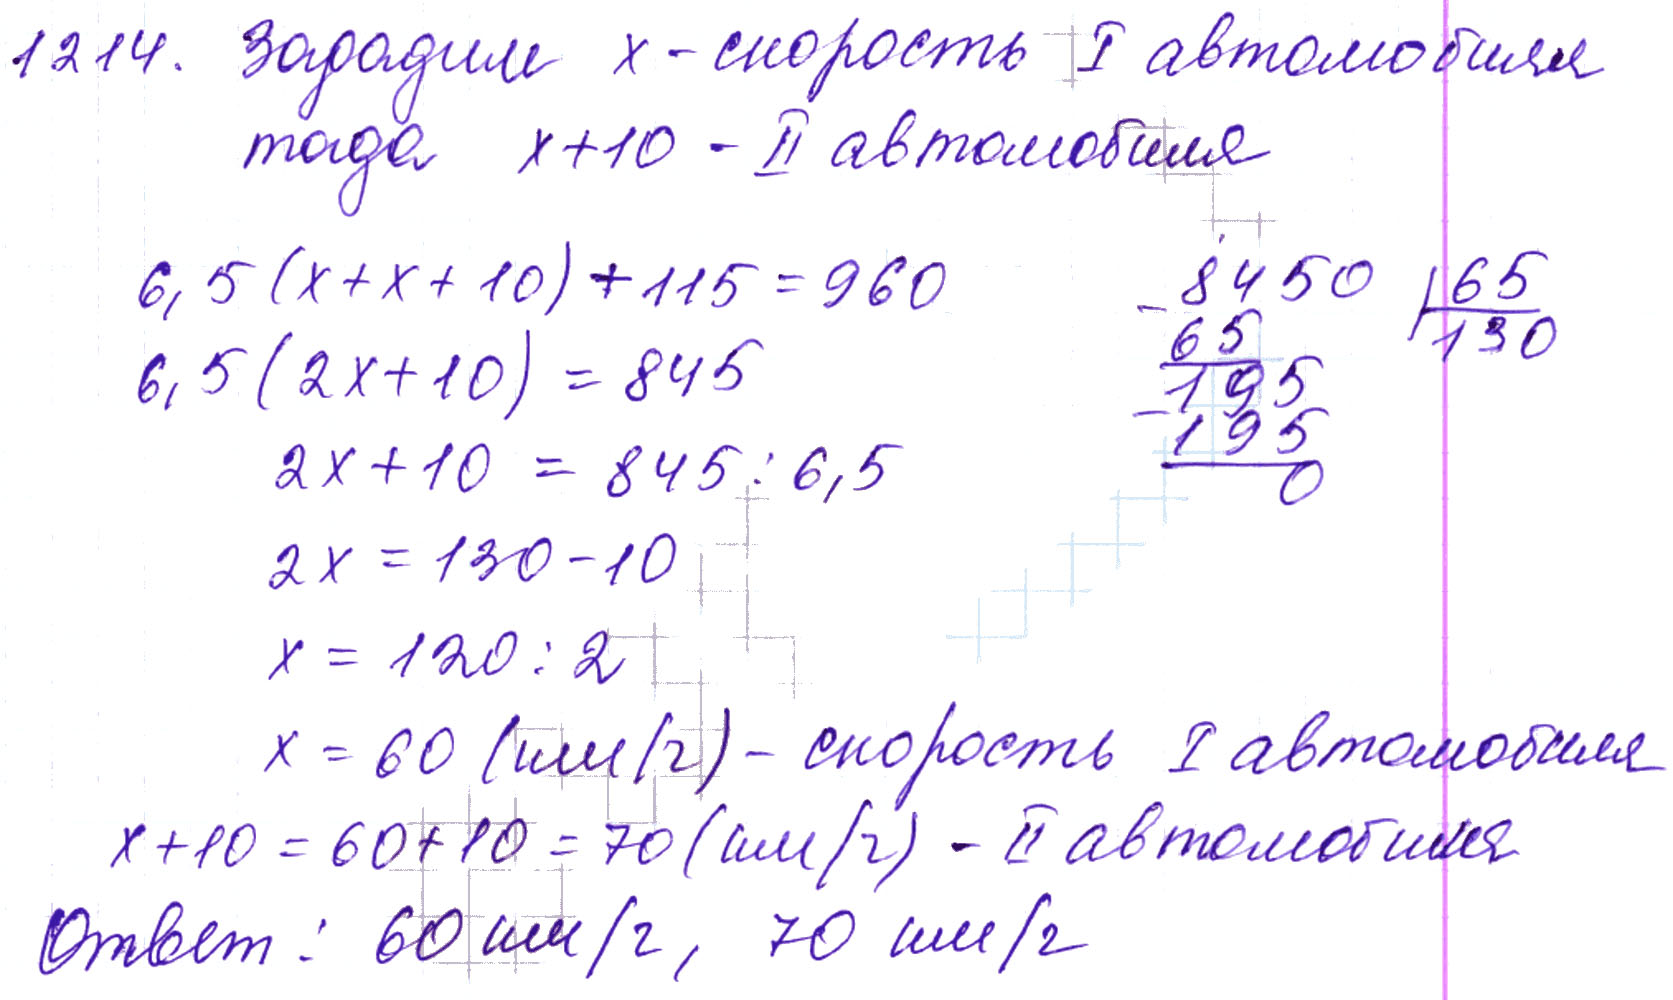 1214. Зададим х - скорость I автомобиля
тогда х+10 - II автомобиля
6,5(х+х+10)+115=960
6,5(2х+10)=845
2х+10=845:6,5
2х=130-10
х=120:2
х=60 (км/ч) - скорость I автомобиля
х+10=60+10=70(км/ч) - II автомобиля
Ответ: 60 км/ч, 70 км/ч
8450 65
65 130
195
195
0